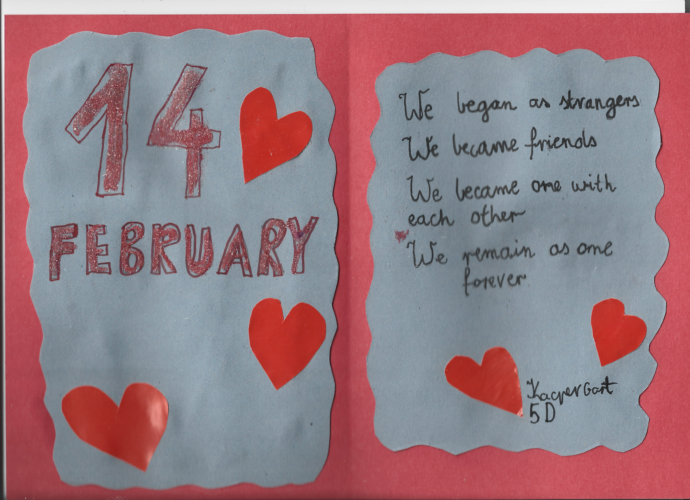 14
FEBRUARY
We began as strangers
We became friends
We became one with
each other
We remain as one
forever
Kacper Gart
5D